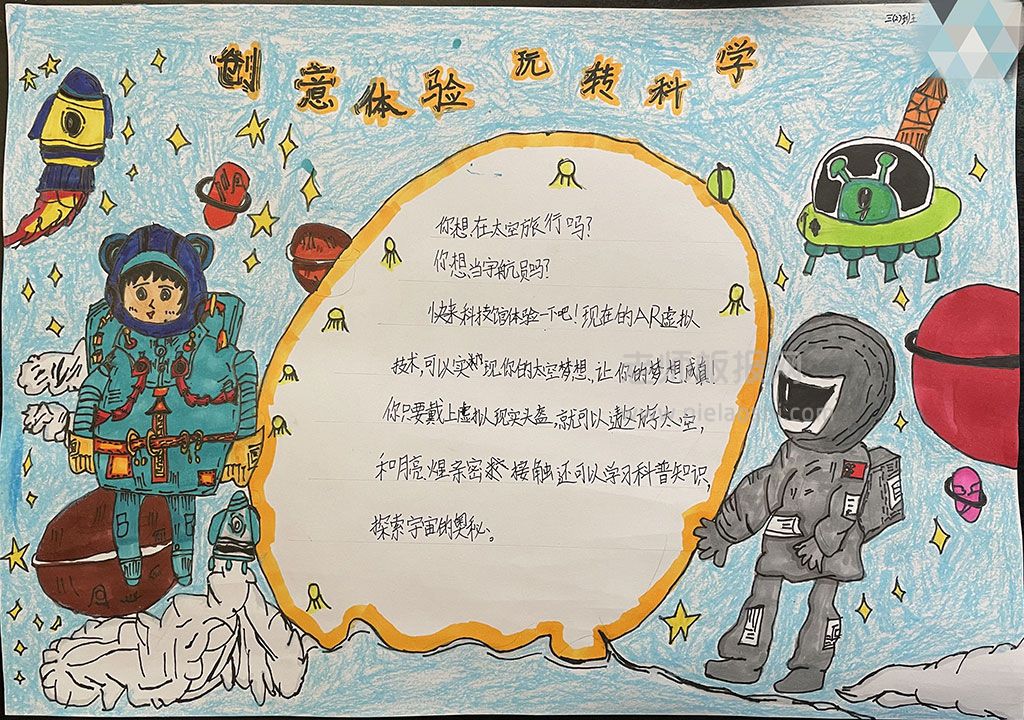 三(2)班王
创意体验 玩转科学
你想在太空旅行吗?
你想当宇航员吗?
快来科技馆体验一下吧!现在的AR虚拟
技术,可以实现你的太空梦想,让你的梦想成真!
你只要戴上虚拟现实头盔,就可以遨游太空,
和月亮、星亲密接触,还可以学习科普知识,
探索宇宙的奥秘。